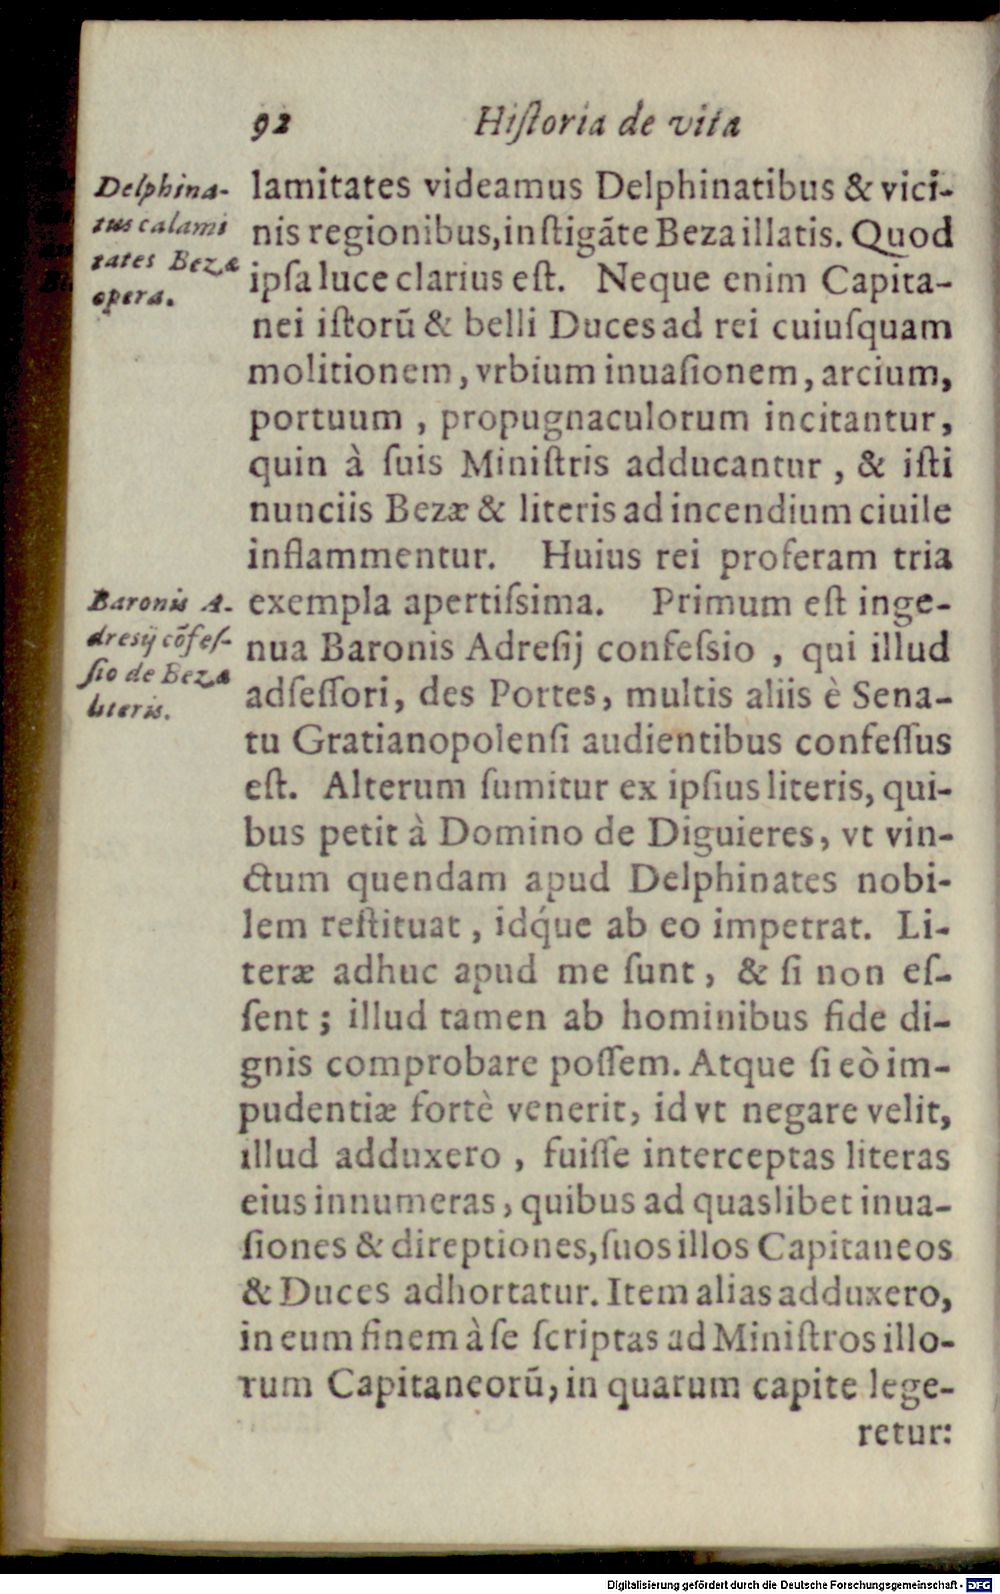 92 Hiſtoria de vita
Delphina-
tus calami
tates Bezæ
opera.
lamitates videamus Delphinatibus & vici-
nis regionibus, inſtigãte Beza illatis. Quod
ipſa luce clarius eſt. Neque enim Capita-
nei iſtorũ & belli Duces ad rei cuiuſquam
molitionem, vrbium inuaſionem, arcium,
portuum, propugnaculorum incitantur,
quin à ſuis Miniſtris adducantur, & iſti
nunciis Bezæ & literis ad incendium ciuile
inflammentur. Huius rei proferam tria
Baronis A-
dresij cõfeſ-
ſio de Bezæ
literis.
exempla apertiſsima. Primum eſt inge-
nua Baronis Adreſij confeſsio, qui illud
adſeſſori, des Portes, multis aliis è Sena-
tu Gratianopolenſi audientibus confeſſus
eſt. Alterum ſumitur ex ipſius literis, qui-
bus petit à Domino de Diguieres, vt vin-
ctum quendam apud Delphinates nobi-
lem reſtituat, idq́ue ab eo impetrat. Li-
teræ adhuc apud me ſunt, & ſi non eſ-
ſent; illud tamen ab hominibus fide di-
gnis comprobare poſſem. Atque ſi eò im-
pudentiæ fortè venerit, id vt negare velit,
illud adduxero, fuiſſe interceptas literas
eius innumeras, quibus ad quaslibet inua-
ſiones & direptiones, ſuos illos Capitaneos
& Duces adhortatur. Item alias adduxero,
in eum finem à ſe ſcriptas ad Miniſtros illo-
rum Capitaneorũ, in quarum capite lege-
retur:
Digitalisierung gefördert durch die Deutsche Forschungsgemeinschaft - DFG